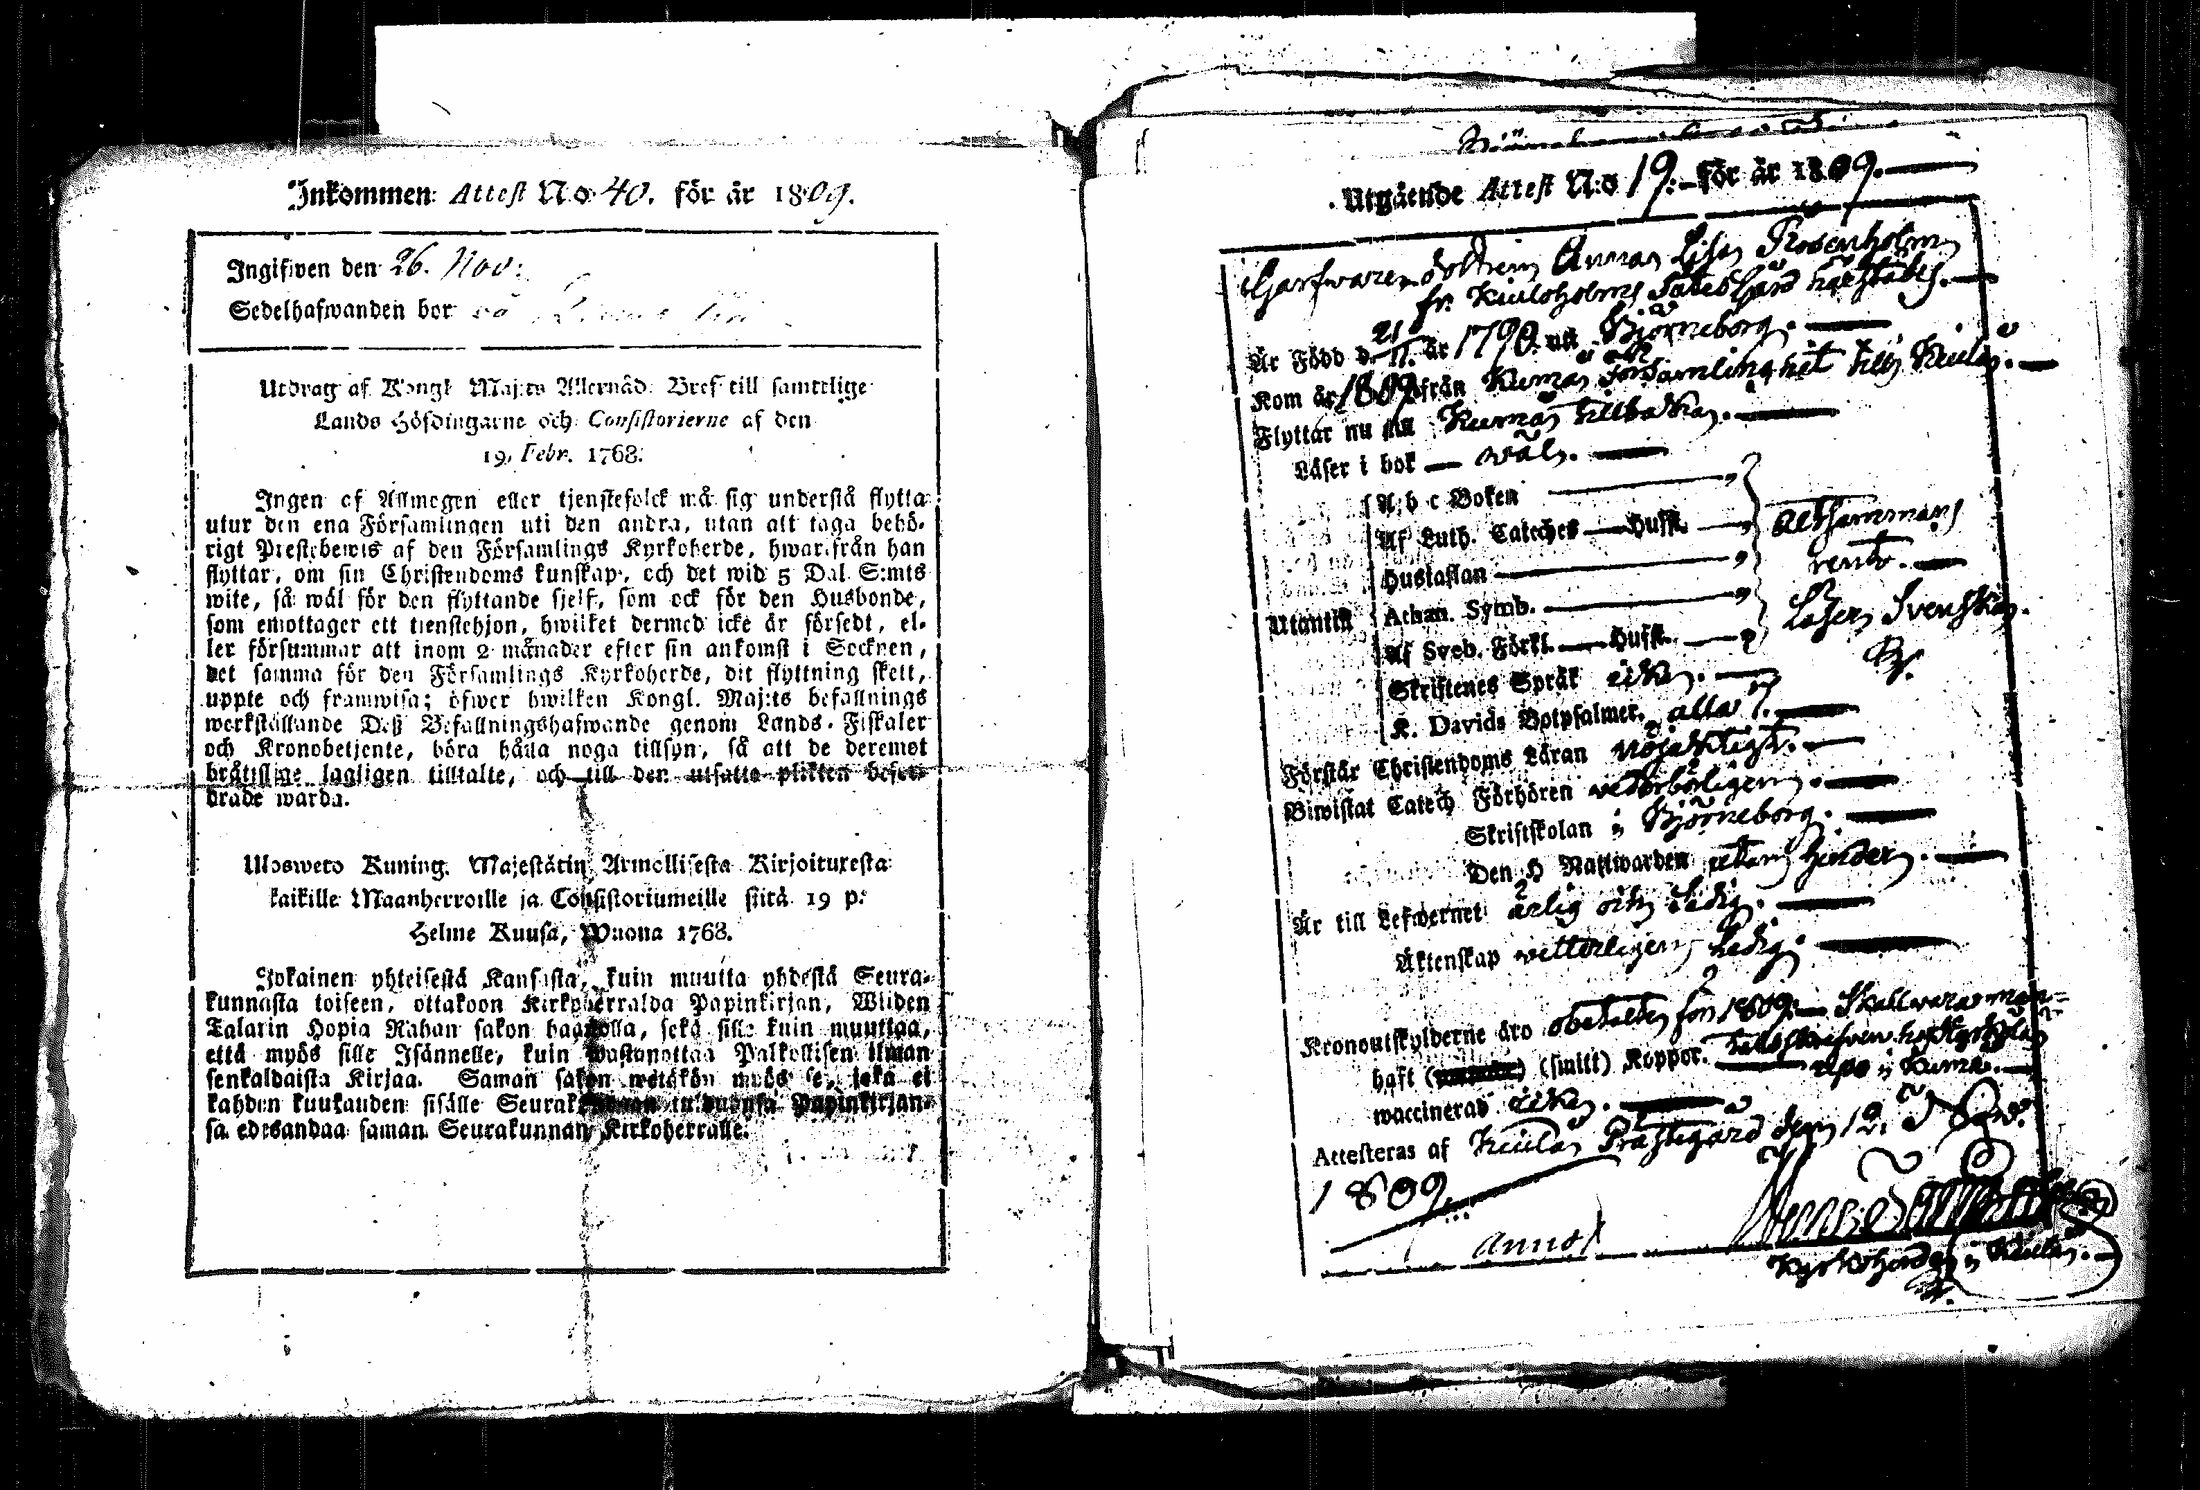 Inkommen Attest No 40. för år 1809.
Ingifwen den 26. Nov:
Sedelhafwanden bor
Utdrag af Kongl Maj:ts Allernåd. Bref till samtelige
Lands Höfdingarne och Consistorierne af den
19. Febr. 1768.
Ingen af Allmogen eller tjenstefolck må sig understå flytta
utur den ena Församlingen uti den andra, utan att taga behö-
rigt Prestebewis af den Församlings Kyrkoherde, hwarifrån han
flyttar, om sin Christendoms kunskap, och det wid 5 Dal. S:mts
wite, så wäl för den flyttande sjelf, som ock för den Husbonde,
som emottager ett tienstehjon, hwilket dermed icke är försedt, el-
ler försummar att inom 2 månader efter sin ankomst i Socknen,
det samma för den Församlings Kyrkoherde, dit flyttning skett,
uppte och framwisa; öfwer hwilken Kongl. Maj:ts befallnings
werkställande Deß Befallningshafwande genom Lands-Fiskaler
och Kronobetjente, böra hålla noga tillsyn, så att de deremot
bråtslige lagligen tilltalte, och till den utsatta plikten befor-
drade warda.
Uloswero Kuning. Majestätin Armollisesta Kirjoituxesta
kaikille Maanherroille ja Consistoriumeille siitä 19 p:
Helme Kuusa, Wuona 1768.
Jokainen yhteisestä Kansasta, kuin muutta yhdestä Seura-
kunnasta toiseen, ottakoon Kirkoherralda Papinkirjan, Wiiden
Talarin Hopia Rahan sakon haastolla, sekä sille kuin muuttaa,
että myös sille Isännelle, kuin wastanottaa Palkollisen ilman
senkaldaista Kirjaa. Saman sakon wetäkön myös se, joka ei
kahden kuukauden sisälle Seurakunnan tulduansa Papinkirjan-
sa edesandaa saman Seurakunnan Kirkoherralle.
Utgående Attest N:o 19. för år 1809.
Garfwaren dottren Anna Lisa Rosenholm
fr. Kiuloholms SäteS Gård härstädes.
Är Född d. 21/11. år 1790. uti Björneborg.
Kom år 1809 från Kumo Församling hit till Kiulo.
Flyttar nu till Kumo tillbaka.
Läser i bok — wäl.
A, b c Boken
Af Luth. Cateches — Hufst. altsammans
Hustaflan rent.
Utantill Athan. Symb. Läser Svenska.
Af Sveb. Förkl. — Hufst.
Skriftenes Språk icke.
K. Davids Botpsalmer. alla 7.
Förstår Christendoms Läran nöjaktigt.
Biwistat Catech Förhören wederbörligen.
Skriftskolan i Björneborg.
Den H Nattwarden utan hinder.
Är till Lefwernet ärlig och Sedig.
Äktenskap wetterligen Ledig.
Kronoutskylderne äro obetalda för 1809. Skall vara man-
talsskrefven hos
haft (smitt) Koppor. i Kumo.
waccinerad icke.
Attesteras af Kiulo Prästegård den 12. Nov.
1809.
Kyrkoherde i Kiulo.